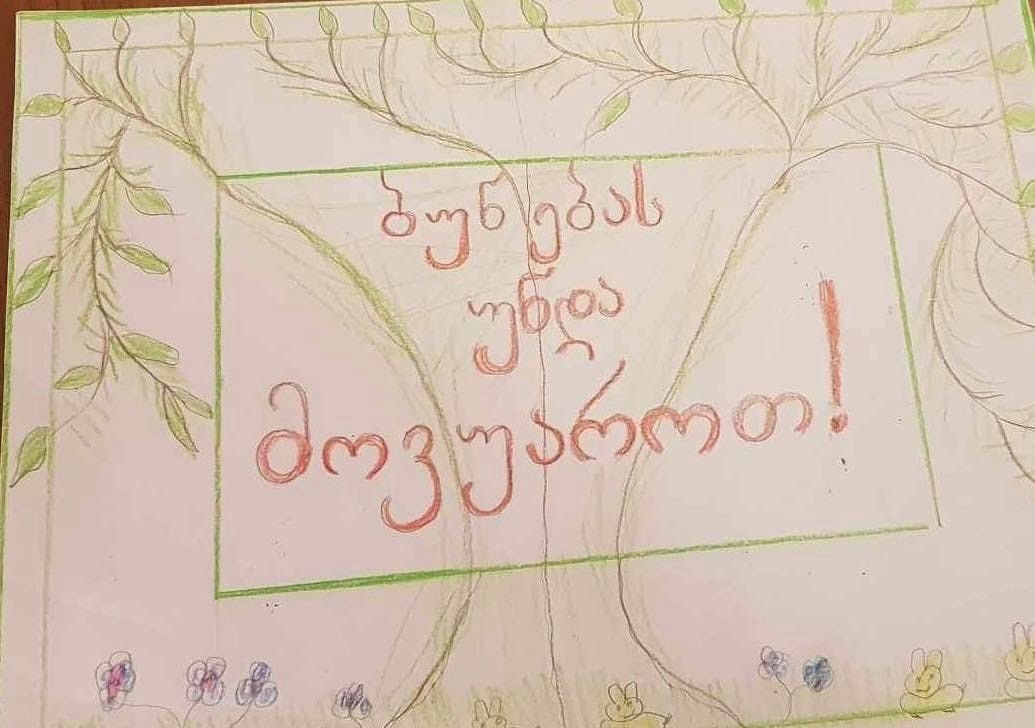 ბუნებას
უნდა
მოვუაროთ!